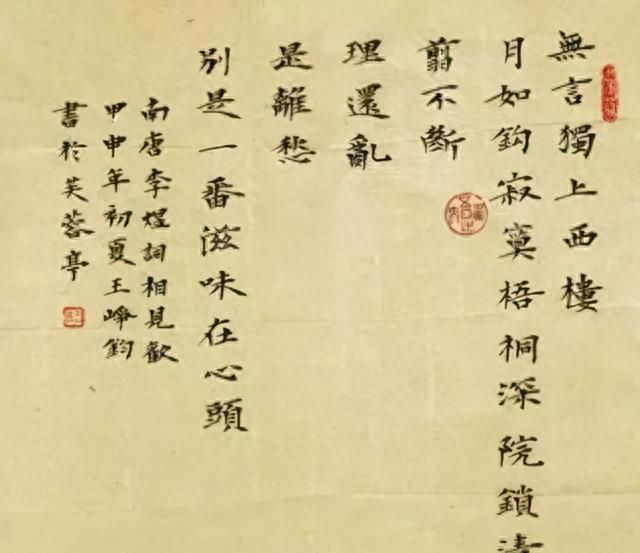 無言獨上西樓
月如鈎寂寞梧桐深院鎖清
翦不斷
理還亂
是離愁
別是一番滋味在心頭
南唐李煜詞相見歡
甲申年初夏王崢鈞
書於芙蓉亭